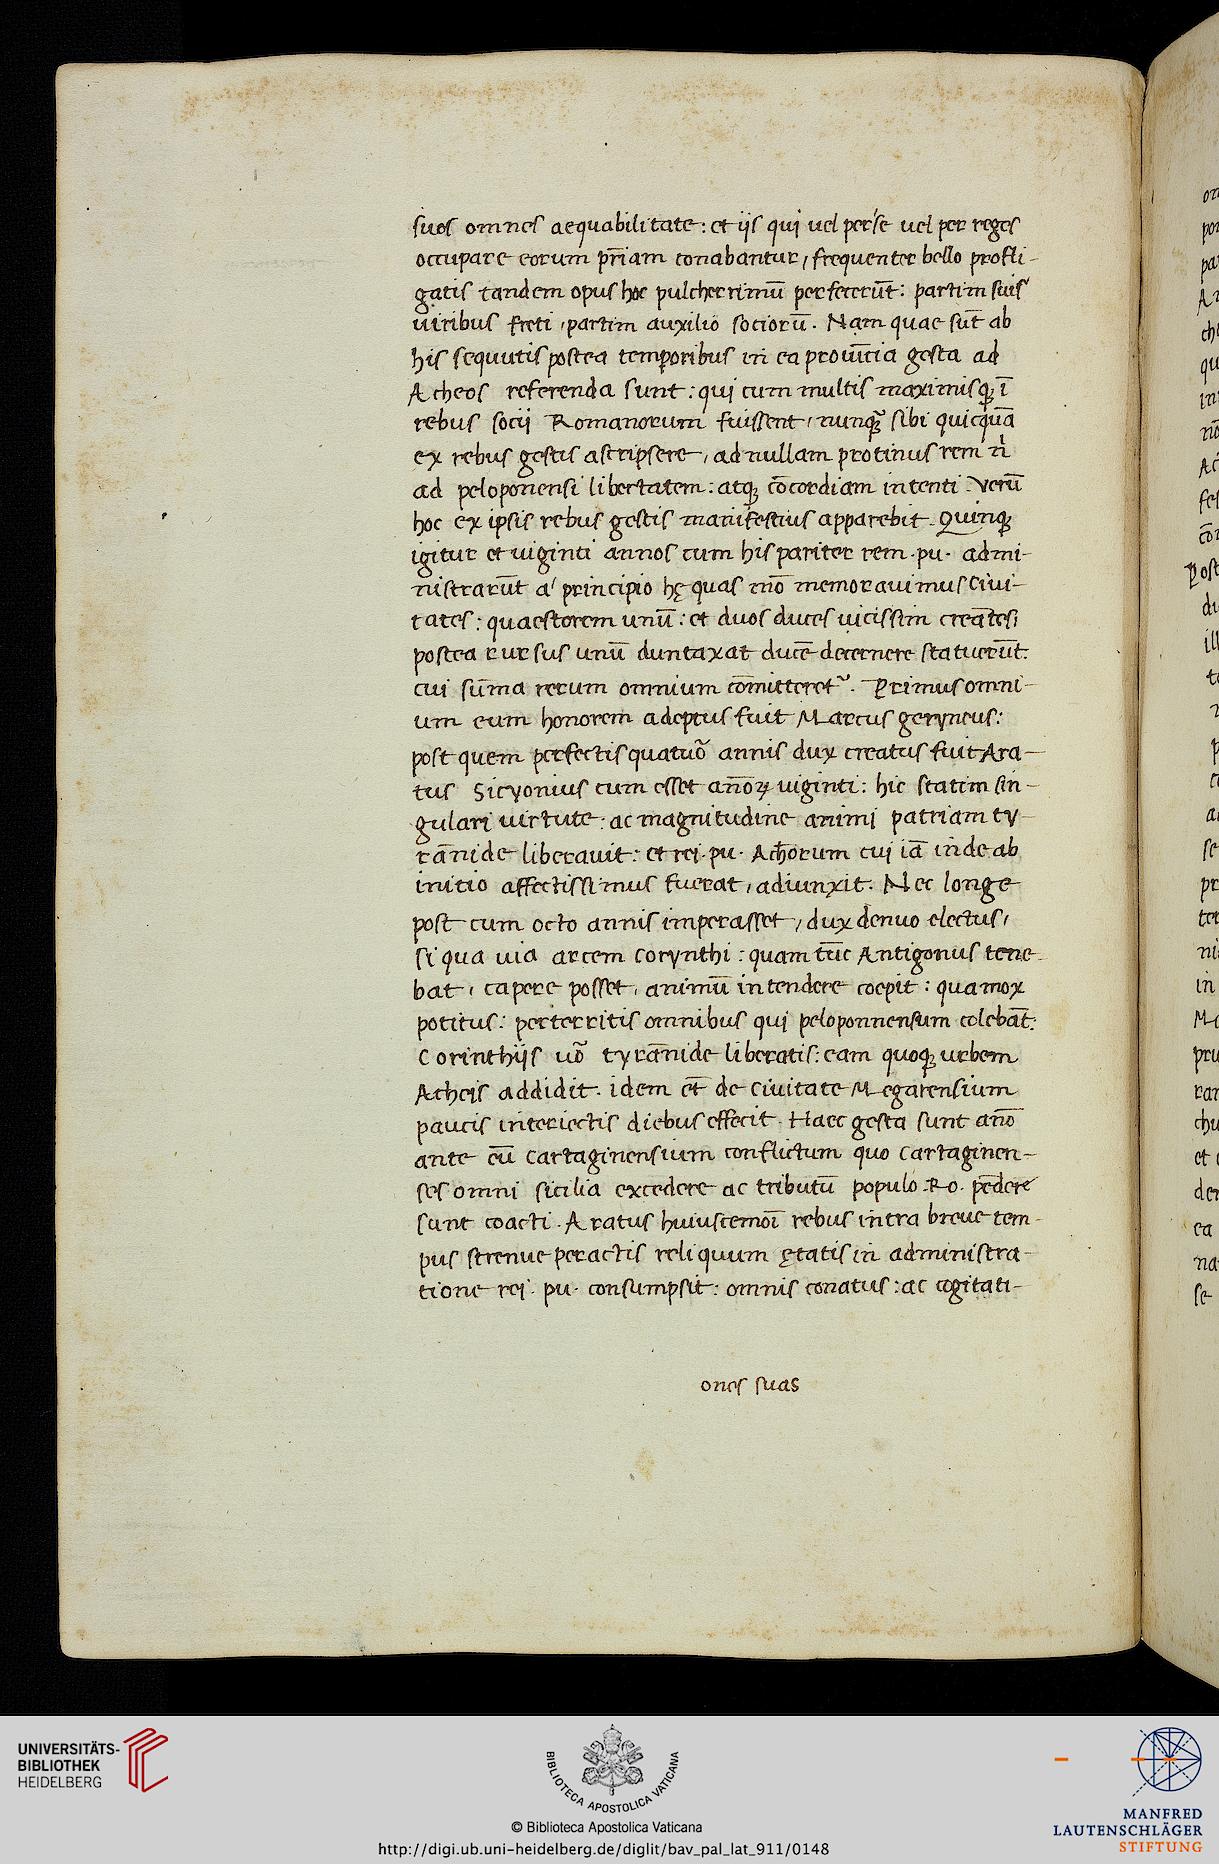 suos omnes aequabilitate: et ijs qui uel per se uel per reges
occupare eorum pr̄iam conabantur, frequenter bello profli-
gatis tandem opus hoc pulcherrimū perfecerūt: partim suis
uiribus freti, partim auxilio sociorū. Nam quae sūt ab
his sequutis postea temporibus in ea prouīcia gesta ad
Acheos referenda sunt: qui cum multis maximisq; ī
rebus socij Romanorum fuissent, nunq̃ sibi quicquā
ex rebus gestis ascripsere, ad nullam protinus rem n̄
ad peloponensi libertatem: atq; cōcordiam intenti. Verū
hoc ex ipsis rebus gestis manifestius apparebit. Quinq;
igitur et uiginti annos cum his pariter rem. pu. admi-
nistrarūt a' principio hę quas mō memorauimus ciui-
tates: quaestorem unū: et duos duces uicissim creātes,
postea rursus unū duntaxat ducē decernere statuerūt:
cui sūma rerum omnium cōmitteret᷑. Primus omni-
um eum honorem adeptus fuit Marcus geryneus:
post quem perfectis quatuõ annis dux creatus fuit Ara-
tus Sicyonius cum esset an̄oꝝ uiginti: hic statim sin-
gulari uirtute: ac magnitudine animi patriam ty-
rānide liberauit: et rei. pu. Ach̄orum cui iā inde ab
initio affectissimus fuerat, adiunxit. Nec longe
post cum octo annis imperasset, dux denuo electus,
si qua uia arcem Corynthi: quam tūc Antigonus tene-
bat, capere posset, animū intendere coepit: qua mox
potitus: perterritis omnibus qui peloponnensum colebāt:
Corinthijs uõ tyrānide liberatis: eam quoq; urbem
Acheis addidit. idem et̄ de ciuitate Megarensium
paucis interiectis diebus effecit. Haec gesta sunt an̄o
ante eū Cartaginensium conflictum quo Cartaginen-
ses omni sicilia excedere ac tributū populo. Ro. pēdere
sunt coacti. Aratus huiuscemōi rebus intra breue tem-
pus strenue peractis reliquum ętatis in administra-
tione rei. pu. consumpsit: omnis conatus: ac cogitati-
ones suas
UNIVERSITÄTS-
BIBLIOTHEK
HEIDELBERG
BIBLIOTECA APOSTOLICA VATICANA
© Biblioteca Apostolica Vaticana
http://digi.ub.uni-heidelberg.de/diglit/bav_pal_lat_911/0148
MANFRED
LAUTENSCHLÄGER
STIFTUNG